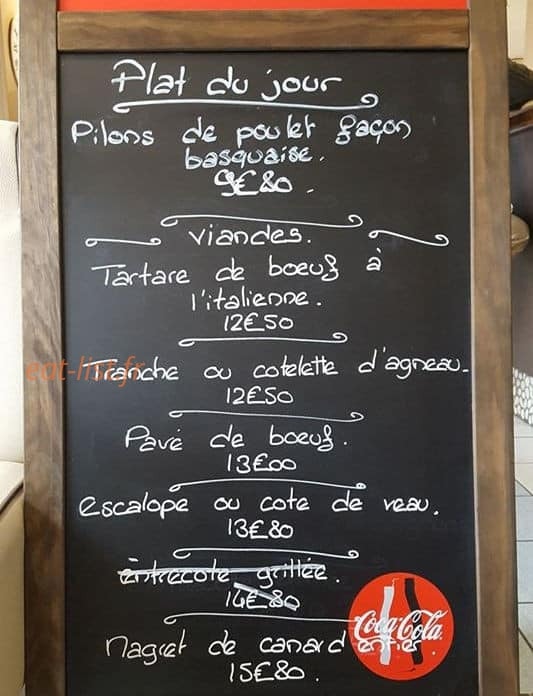 Plat du jour
Pilons de poulet façon
basquaise.
9€80.
viandes.
Tartare de boeuf à
l'italienne.
12€50
eat-list.fr
Tranche ou cotelette d'agneau.
12€50
Pavé de boeuf.
13€00
Escalope ou cote de veau.
13€80
entrecote grillée.
14€80
Magret de canard entier.
15€80.
Coca-Cola